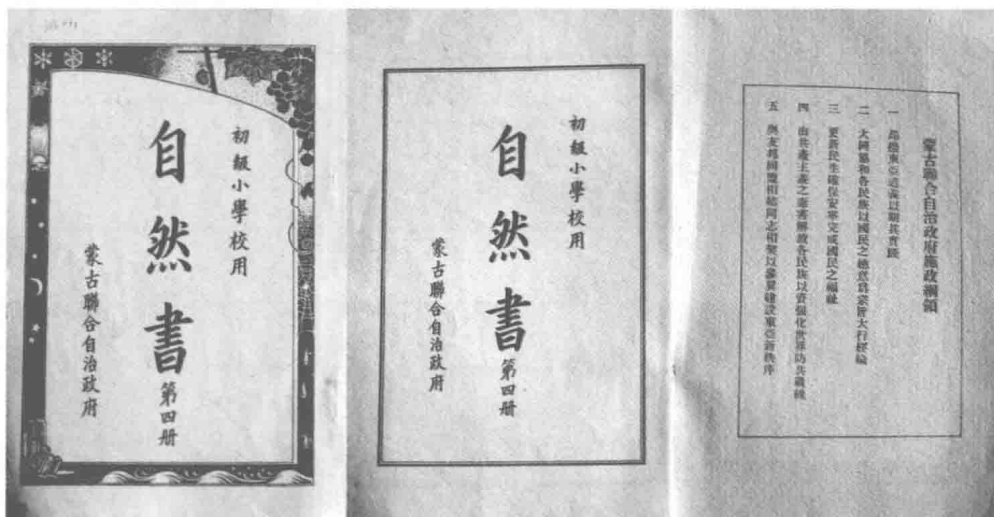 初級小學校用
自然書第四册
蒙古聯合自治政府
初級小學校用
自然書第四册
蒙古聯合自治政府
蒙古聯合自治政府施政綱領
一 昂揚東亞道義以期其實踐
二 大同協和各民族以國民之總意爲宗旨大行經綸
三 更新民生確保安寧完成國民之福祉
四 由共產主義之毒害解放各民族以資强化世界防共戰線
五 與友邦同盟相結同志相契以參翼建設東亞新秩序